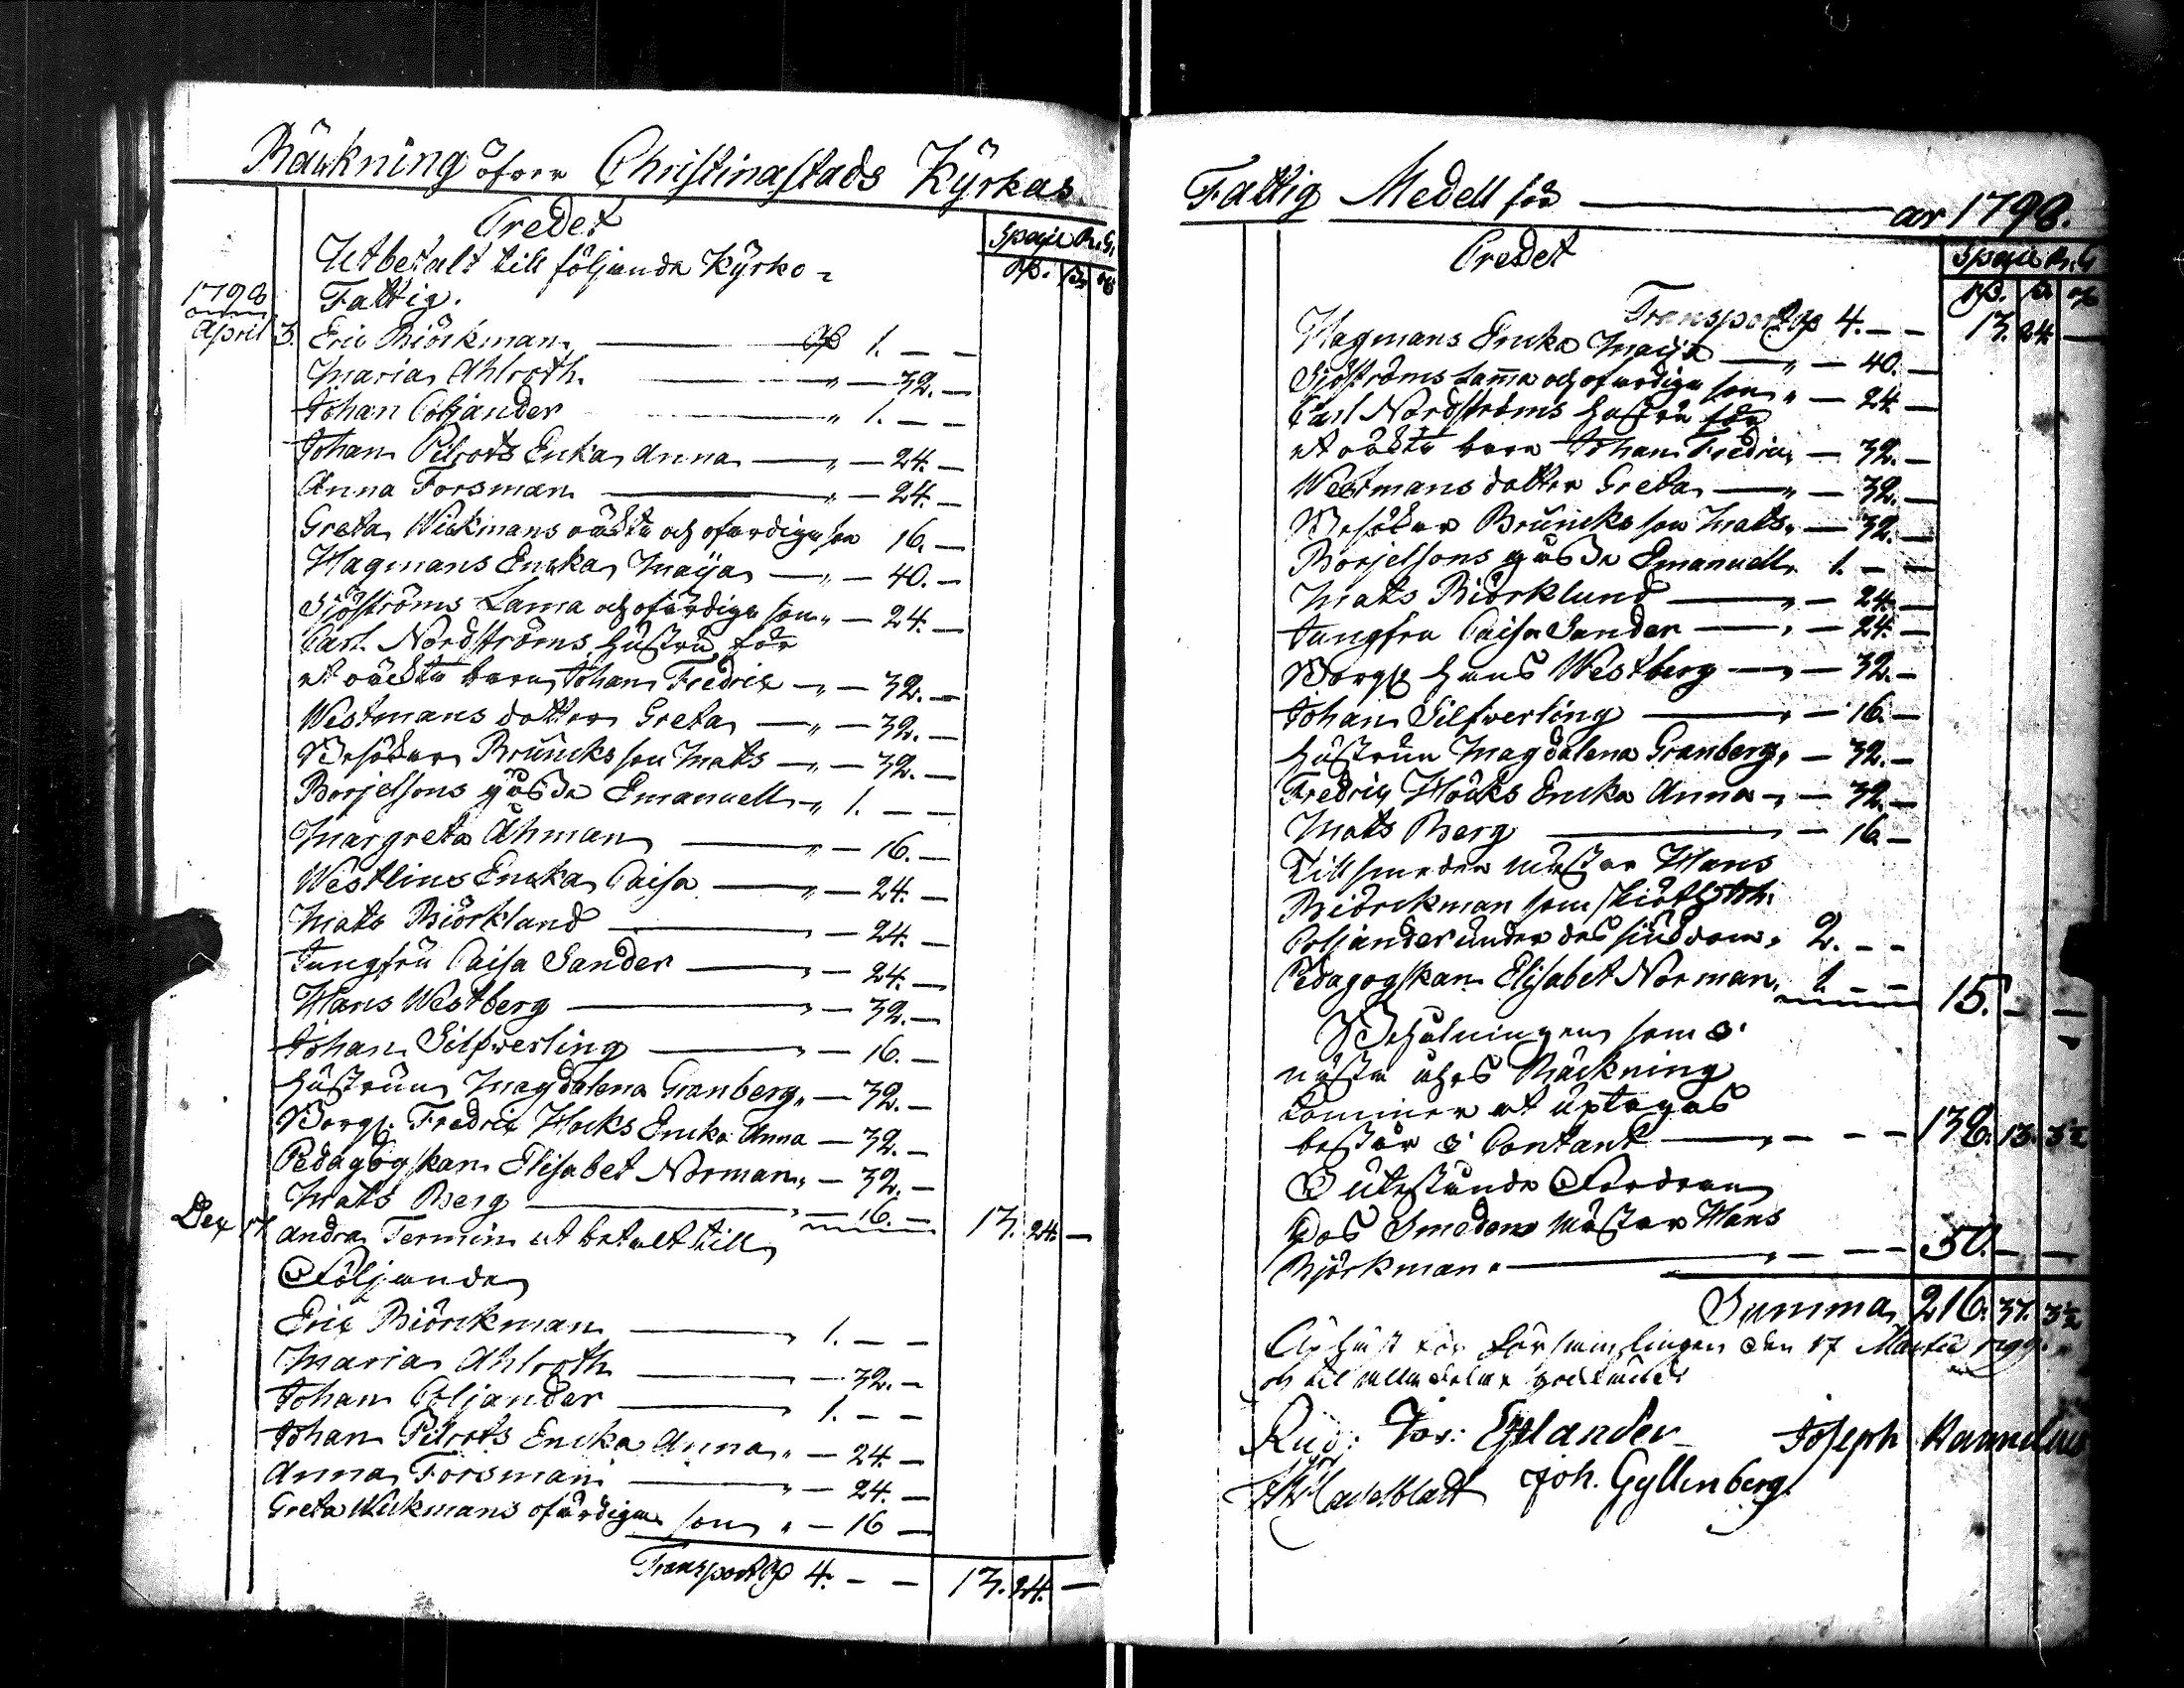 Räkning öfver Christinæstads Kÿrkas
Credet
Specie R.G.
Utbetalt till följande Kÿrko-
Fattig.
1798
April 3. Eric Biörkman 1. – –
Maria Ahlroth – 32. –
Johan Coljander 1. – –
Johan Pilrots Enka Anna – 24. –
Anna Forsman – 24. –
Greta Wickmans ofärdiga son 16. –
Hagmans Encka Maija – 40. –
Sjöströms Lama och ofärdiga son – 24. –
Carl Nordströms hustru för
et oäckta barn Johan Fredric – 32. –
Westmans dotter Greta – 32. –
Besökar Bruncks son Mats – 32. –
Borjelsons gosse Emanuell 1. – –
Margreta Åhman – 16. –
Westlins Encka Caisa – 24. –
Mats Biörklund – 24. –
Jungfru Caisa Sander – 24. –
Hans Westberg – 32. –
Johan Silfverling – 16. –
Hustrun Magdalena Granberg – 32. –
Borg. Fredric Höcks Encka Anna – 32. –
Pedagogskan Elisabet Norman – 32. –
Mats Berg – 16. – 13. 24. –
Dec 17 andra Termin utbetalt till
Följande
Eric Biörckman 1. – –
Maria Ahlroth – 32. –
Johan Coljander 1. – –
Johan Pilrots Encka Anna – 24. –
Anna Forsman – 24. –
Greta Wickmans ofärdiga son – 16 –
Transport 4. – – 13. 24. –
Fattig Medell för år 1798.
Credet
Specie R.G
Transport 4. – – 13. 24. –
Hagmans Encka Maija – 40. –
Sjöströms Lama och ofärdiga son – 24 –
Carl Nordströms hustru för
et oäckta barn Johan Fredric – 32. –
Westmans dotter Greta – 32. –
Besökar Bruncks son Mats – 32. –
Borjelsons gosse Emanuell 1. – –
Mats Biörklund – 24. –
Jungfru Caisa Sander – 24. –
Borg. Hans Westberg – 32. –
Johan Silfverling – 16. –
Hustrun Magdalena Granberg – 32. –
Fredric Höcks Encka Anna – 32. –
Mats Berg – 16. –
Till smeden mäster Hans
Biörckman som skiött Joh.
Coljander under des siukdom 2. – –
Pedagogskan Elisabet Norman 1. – – 15. – –
Behålningen som i
nästa åhrs Räckning
kommer at uptagas
består i Contant – – – 138. 13. 3½
I utestånde Fordran
hos Smeden Mäster Hans
Björkman – – – 50. – –
Summa 216. 37. 3½
Upläst för Församlingen den 17 Martii 1799.
och til alla delar godkändt
Joseph
Joh. Gyllenberg